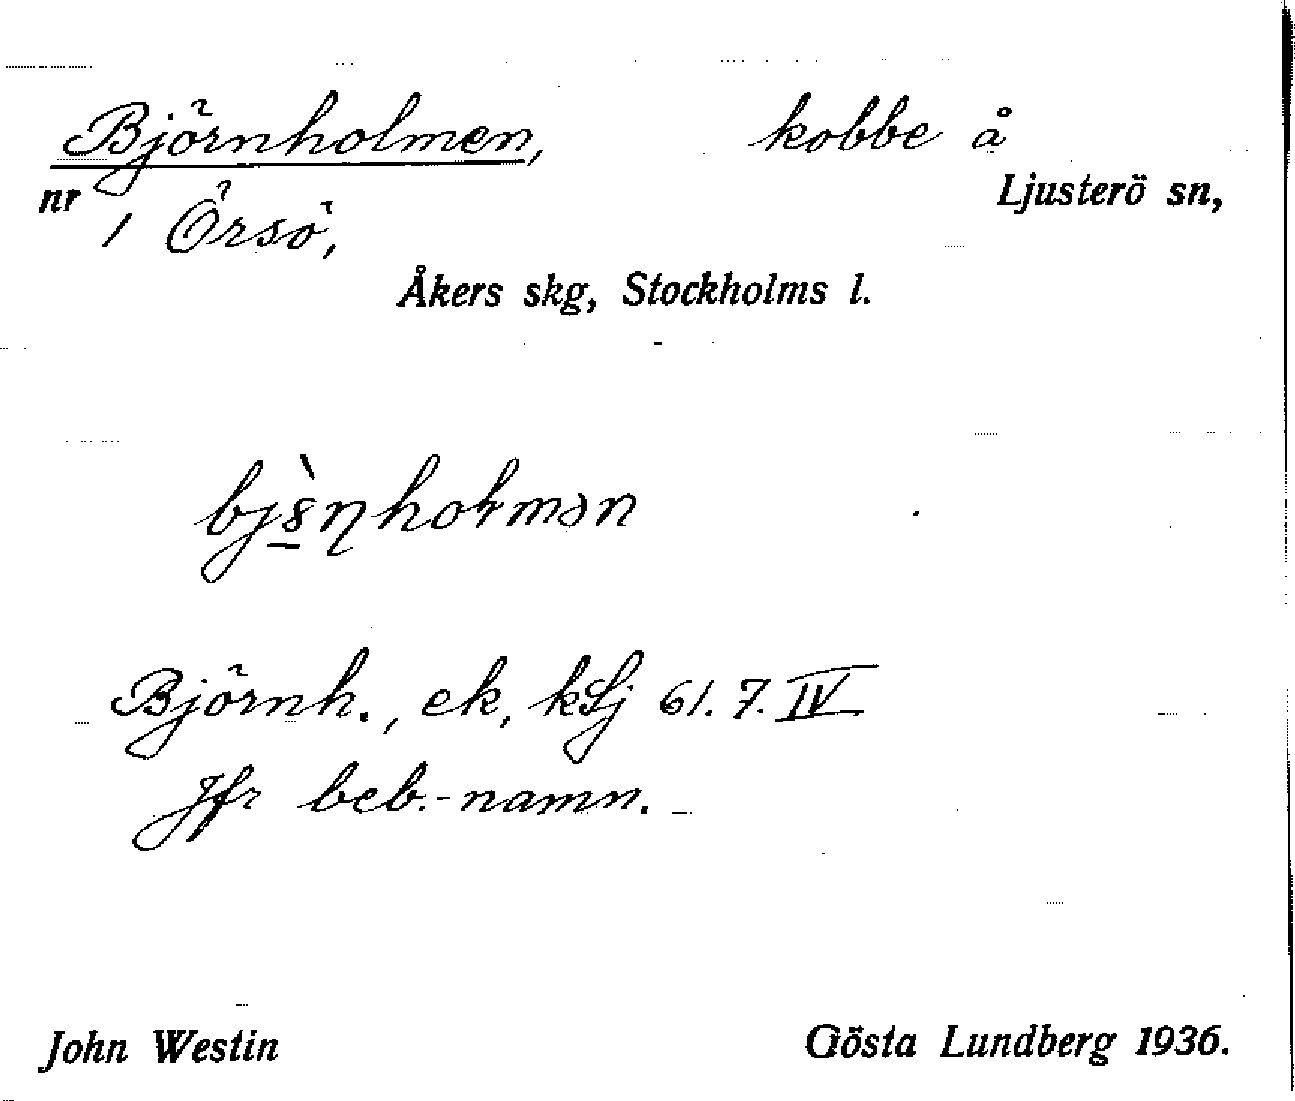 Björnholmen, kobbe å
nr 1 Örsö, Ljusterö sn,
Åkers skg, Stockholms l.
Björnh., ek, kLj 61. 7. IV
Jfr beb.-namn.
John Westin Gösta Lundberg 1936.